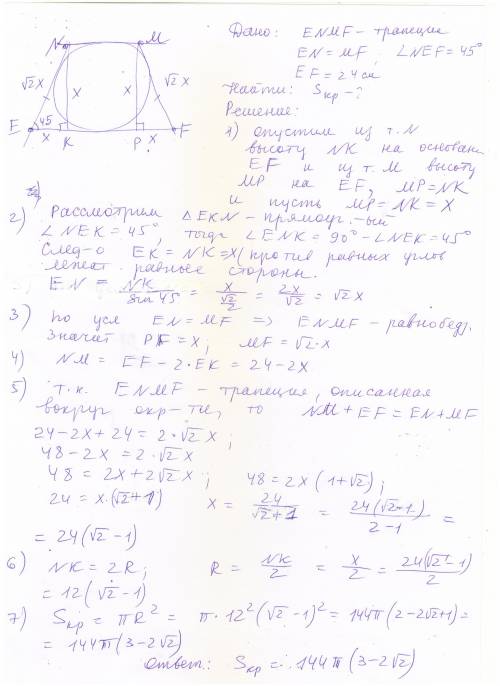 Дано: ENMF - трапеция
EN = MF, ∠NEF = 45°
EF = 24 см
Найти: Sкр - ?
Решение:
N M
√2x x x √2x
E 45 x K P x F
1) опустим из т. N
высоту NK на основани
EF и из т. M высоту
MP на EF, MP = NK
и пусть MP = NK = X
2) Рассмотрим △EKN - прямоуг.-ый
∠NEK = 45°, тогда ∠ENK = 90° - ∠NEK = 45°
След-о EK = NK = X (против равных углов
лежат равные стороны.
EN = NK/sin 45 = x/(√2/2) = 2x/√2 = √2 x
3) по усл EN = MF => ENMF - равнобедр.
Значит PF = X; MF = √2·x
4) NM = EF - 2·EK = 24 - 2x
5) т.к. ENMF - трапеция, описанная
вокруг окр-ти, то NM + EF = EN + MF
24 - 2x + 24 = 2·√2 x;
48 - 2x = 2·√2 x
48 = 2x + 2√2 x; 48 = 2x (1 + √2);
24 = x·(√2 + 1) x = 24/(√2 + 1) = 24(√2 - 1)/(2 - 1) =
= 24(√2 - 1)
6) NK = 2R; R = NK/2 = x/2 = 24(√2 - 1)/2
= 12(√2 - 1)
7) Sкр = πR² = π·12²(√2 - 1)² = 144π(2 - 2√2 + 1) =
= 144π(3 - 2√2)
Ответ: Sкр = 144π(3 - 2√2)